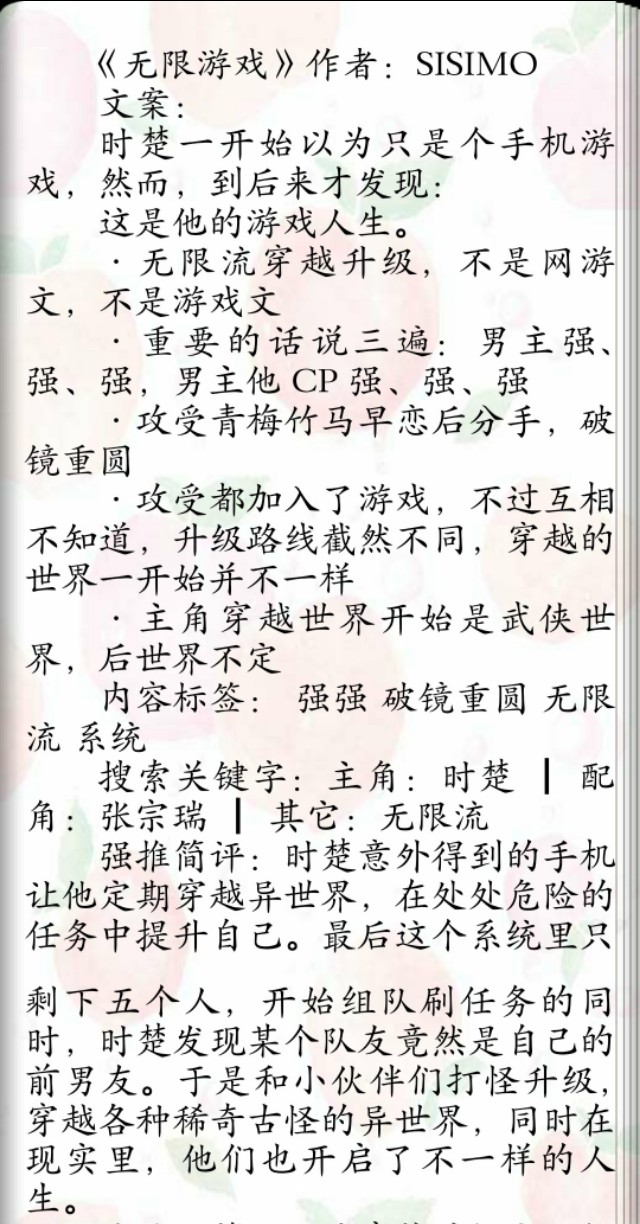 《无限游戏》作者：SISIMO
文案：
时楚一开始以为只是个手机游
戏，然而，到后来才发现：
这是他的游戏人生。
·无限流穿越升级，不是网游
文，不是游戏文
·重要的话说三遍：男主强、
强、强，男主他 CP 强、强、强
·攻受青梅竹马早恋后分手，破
镜重圆
·攻受都加入了游戏，不过互相
不知道，升级路线截然不同，穿越的
世界一开始并不一样
·主角穿越世界开始是武侠世
界，后世界不定
内容标签： 强强 破镜重圆 无限
流 系统
搜索关键字：主角：时楚 ┃ 配
角：张宗瑞 ┃ 其它：无限流
强推简评：时楚意外得到的手机
让他定期穿越异世界，在处处危险的
任务中提升自己。最后这个系统里只
剩下五个人，开始组队刷任务的同
时，时楚发现某个队友竟然是自己的
前男友。于是和小伙伴们打怪升级，
穿越各种稀奇古怪的异世界，同时在
现实里，他们也开启了不一样的人
生。